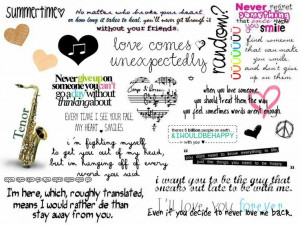 summertime
No matter who broke your heart
or how long it takes to heal, you'll never get through it
without your friends.
love comes
unexpectedly
random?
Never regret
something
that once made
you smile
find someone
that can make
you smile,
and don't give
up on them
Never give up on
someone you can't
go a day without
thinking about
EVERY TIME I SEE YOUR FACE,
MY HEART SMILES
when you love someone,
you should treat them the way
you feel, sometimes words aren't enough.
Tenor
there's 6 billion people on earth,
& I SHOULD BE HAPPY
i'm fighting myself
to get you out of my head,
but im hanging off of every
word you said
I'm here, which, roughly translated,
means I would rather die than
stay away from you.
i want you to be the guy that
sneaks out late to be with me.
I'll love you forever
Even if you decide to never love me back.